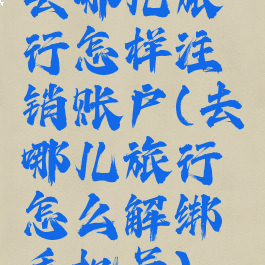 去哪儿旅
行怎样注
销账户(去
哪儿旅行
怎么解绑
手机号)